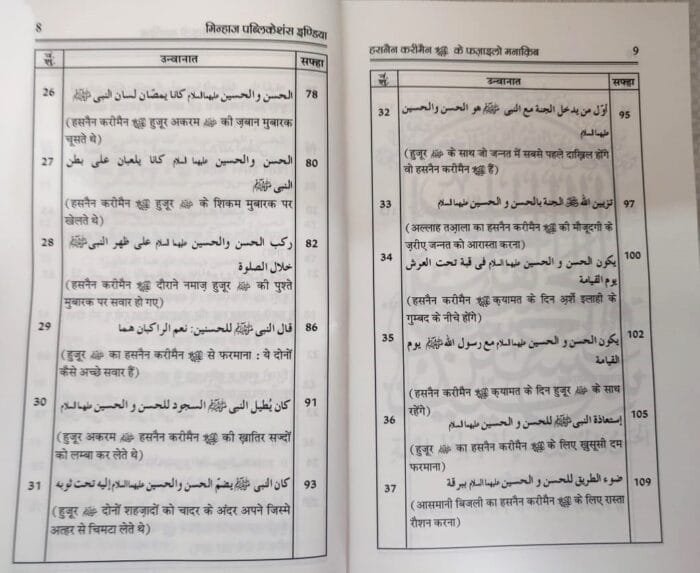 8 मिन्हाज पब्लिकेशंस इण्डिया
न. शु. उन्वानात सफ्हा
26 الحسن والحسين عليهما السلام كانا يمصّان لسان النبي ﷺ 78
(हसनैन करीमैन हुजूर अकरम ﷺ की ज़बान मुबारक
चूसते थे)
27 الحسن والحسين عليهما السلام كانا يلعبان على بطن 80
النبي ﷺ
(हसनैन करीमैन हुजूर ﷺ के शिकम मुबारक पर
खेलते थे)
28 ركب الحسن والحسين عليهما السلام على ظهر النبي ﷺ 82
خلال الصلوة
(हसनैन करीमैन दौराने नमाज़ हुजूर ﷺ की पुश्ते
मुबारक पर सवार हो गए)
29 قال النبي ﷺ للحسنين: نعم الراكبان هما 86
(हुजूर ﷺ का हसनैन करीमैन से फरमाना : ये दोनों
कैसे अच्छे सवार हैं)
30 كان يُطيل النبي ﷺ السجود للحسن و الحسين عليهما السلام 91
(हुजूर अकरम ﷺ हसनैन करीमैन की ख़ातिर सज्दों
को लम्बा कर लेते थे)
31 كان النبي ﷺ يضمّ الحسن والحسين عليهما السلام إليه تحت ثوبه 93
(हुजूर ﷺ दोनों शहज़ादों को चादर के अंदर अपने जिस्मे
अत्हर से चिमटा लेते थे)
हसनैन करीमैन के फज़ाइलो मनाक़िब 9
न. शु. उन्वानात सफ्हा
32 أوّل من يدخل الجنة مع النبي ﷺ هو الحسن والحسين 95
عليهما السلام
(हुजूर ﷺ के साथ जो जन्नत में सबसे पहले दाख़िल होंगे
वो हसनैन करीमैन हैं)
33 تزيين الله الجنة بالحسن و الحسين عليهما السلام 97
(अल्लाह तआ़ला का हसनैन करीमैन की मौजूदगी के
ज़रीए जन्नत को आरास्ता करना)
34 يكون الحسن و الحسين عليهما السلام فى قبة تحت العرش 100
يوم القيامة
(हसनैन करीमैन क़यामत के दिन अ़र्शे इलाही के
गुम्बद के नीचे होंगे)
35 يكون الحسن و الحسين عليهما السلام مع رسول الله ﷺ يوم 102
القيامة
(हसनैन करीमैन क़यामत के दिन हुजूर ﷺ के साथ
रहेंगे)
36 إستعاذة النبي ﷺ للحسن و الحسين عليهما السلام 105
(हुजूर ﷺ का हसनैन करीमैन के लिए खुसूसी दम
फरमाना)
37 ضوء الطريق للحسن و الحسين عليهما السلام ببرقة 109
(आसमानी बिजली का हसनैन करीमैन के लिए रास्ता
रौशन करना)